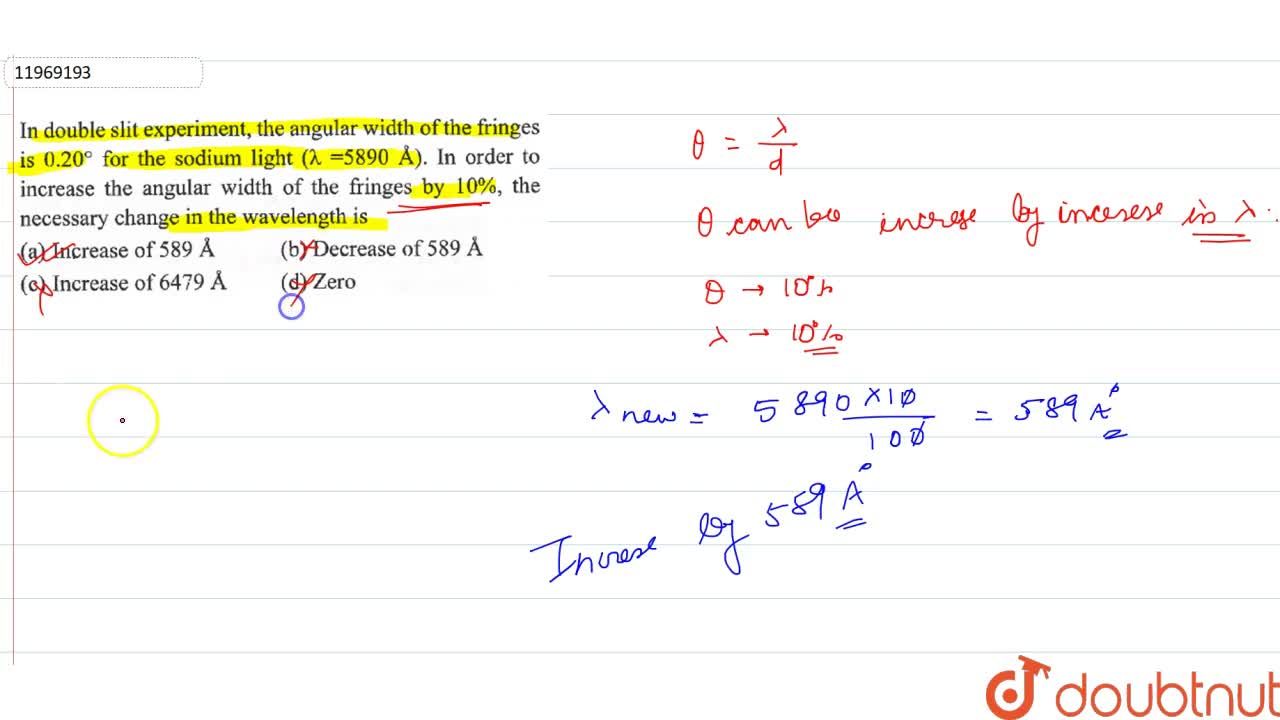 11969193
In double slit experiment, the angular width of the fringes
is 0.20° for the sodium light (λ =5890 Å). In order to
increase the angular width of the fringes by 10%, the
necessary change in the wavelength is
(a) Increase of 589 Å (b) Decrease of 589 Å
(c) Increase of 6479 Å (d) Zero
θ = λ/d
θ can be increse by increse in λ.
θ → 10%
λ → 10%
λ new = 5890 × 10 / 100 = 589 A°
Increse by 589 A°
doubtnut